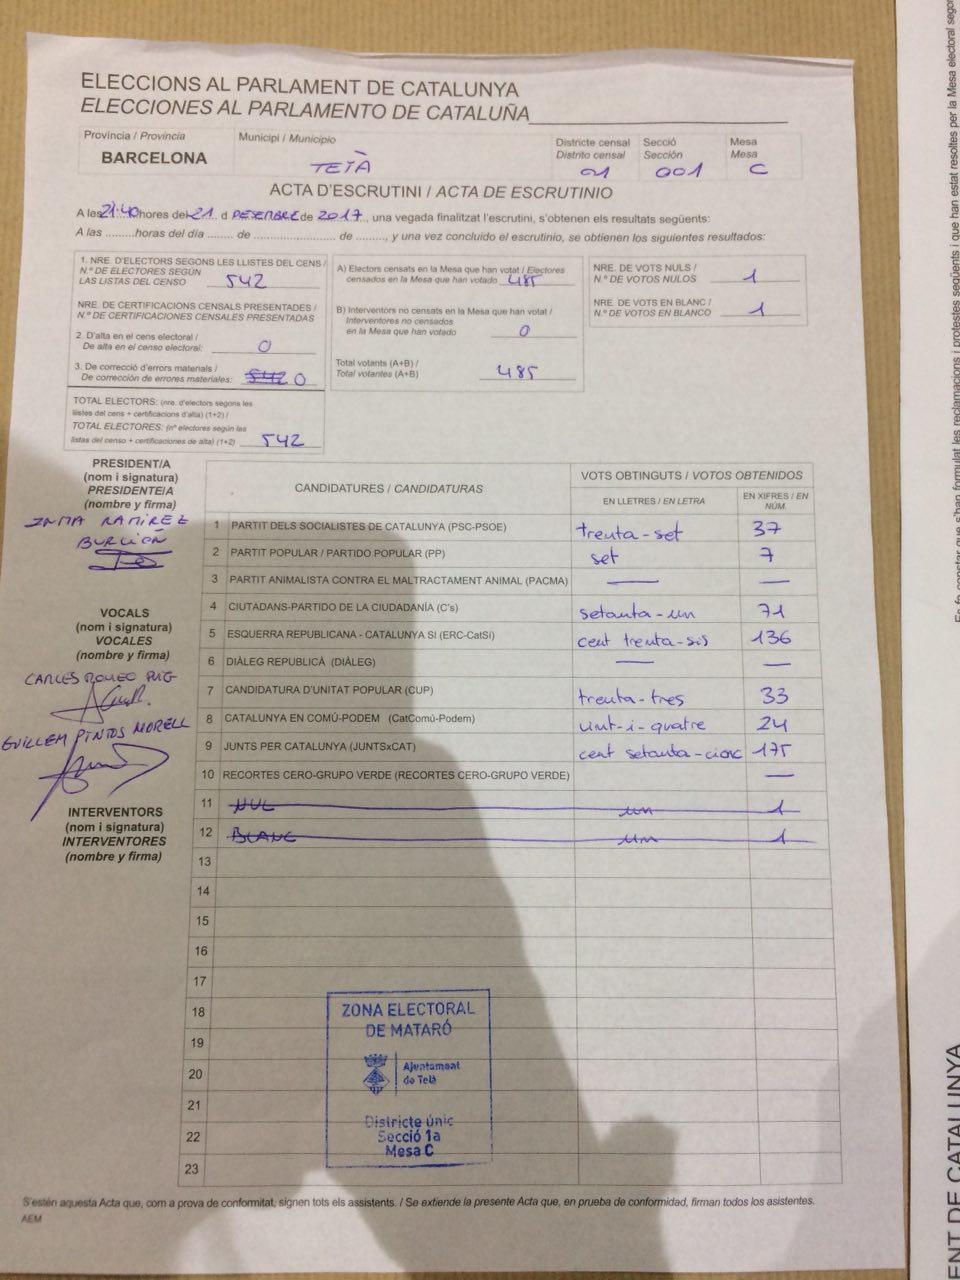 ELECCIONS AL PARLAMENT DE CATALUNYA
ELECCIONES AL PARLAMENTO DE CATALUÑA
Província / Provincia
BARCELONA
Municipi / Municipio
TEIÀ
Districte censal
Distrito censal
01
Secció
Sección
001
Mesa
Mesa
C
ACTA D'ESCRUTINI / ACTA DE ESCRUTINIO
A les 21:40 hores del 21 d DESEMBRE de 2017, una vegada finalitzat l'escrutini, s'obtenen els resultats següents:
A las .........horas del día ....... de .............................. de ........, y una vez concluido el escrutinio, se obtienen los siguientes resultados:
1. NRE. D'ELECTORS SEGONS LES LLISTES DEL CENS /
N.º DE ELECTORES SEGÚN
LAS LISTAS DEL CENSO 542
NRE. DE CERTIFICACIONS CENSALS PRESENTADES /
N.º DE CERTIFICACIONES CENSALES PRESENTADAS
2. D'alta en el cens electoral /
De alta en el censo electoral: 0
3. De correcció d'errors materials /
De corrección de errores materiales: 542 0
TOTAL ELECTORS: (nre. d'electors segons les
llistes del cens + certificacions d'alta) (1+2) /
TOTAL ELECTORES: (nº electores según las
listas del censo + certificaciones de alta) (1+2) 542
A) Electors censats en la Mesa que han votat / Electores
censados en la Mesa que han votado 485
B) Interventors no censats en la Mesa que han votat /
Interventores no censados
en la Mesa que han votado 0
Total votants (A+B) /
Total votantes (A+B) 485
NRE. DE VOTS NULS /
N.º DE VOTOS NULOS 1
NRE. DE VOTS EN BLANC /
N.º DE VOTOS EN BLANCO 1
PRESIDENT/A
(nom i signatura)
PRESIDENTE/A
(nombre y firma)
INMA RAMÍREZ
VOCALS
(nom i signatura)
VOCALES
(nombre y firma)
CARLES ROMEO PUIG
GUILLEM PINTOS MORELL
INTERVENTORS
(nom i signatura)
INTERVENTORES
(nombre y firma)
CANDIDATURES / CANDIDATURAS
VOTS OBTINGUTS / VOTOS OBTENIDOS
EN LLETRES / EN LETRA
EN XIFRES / EN NÚM.
1 PARTIT DELS SOCIALISTES DE CATALUNYA (PSC-PSOE) trenta-set 37
2 PARTIT POPULAR / PARTIDO POPULAR (PP) set 7
3 PARTIT ANIMALISTA CONTRA EL MALTRACTAMENT ANIMAL (PACMA) — —
4 CIUTADANS-PARTIDO DE LA CIUDADANÍA (C's) setanta-un 71
5 ESQUERRA REPUBLICANA - CATALUNYA SI (ERC-CatSí) cent trenta-sis 136
6 DIÀLEG REPUBLICÀ (DIÀLEG) — —
7 CANDIDATURA D'UNITAT POPULAR (CUP) trenta-tres 33
8 CATALUNYA EN COMÚ-PODEM (CatComú-Podem) vint-i-quatre 24
9 JUNTS PER CATALUNYA (JUNTSxCAT) cent setanta-cinc 175
10 RECORTES CERO-GRUPO VERDE (RECORTES CERO-GRUPO VERDE) —
11 NUL un 1
12 BLANC un 1
13
14
15
16
17
18
19
20
21
22
23
ZONA ELECTORAL
DE MATARÓ
Ajuntament
de Teià
Districte únic
Secció 1a
Mesa C
S'estén aquesta Acta que, com a prova de conformitat, signen tots els assistents. / Se extiende la presente Acta que, en prueba de conformidad, firman todos los asistentes.
AEM
Es fa constar que s'han formulat les reclamacions i protestes següents i que han estat resoltes per la Mesa electoral
ENT DE CATALUNYA